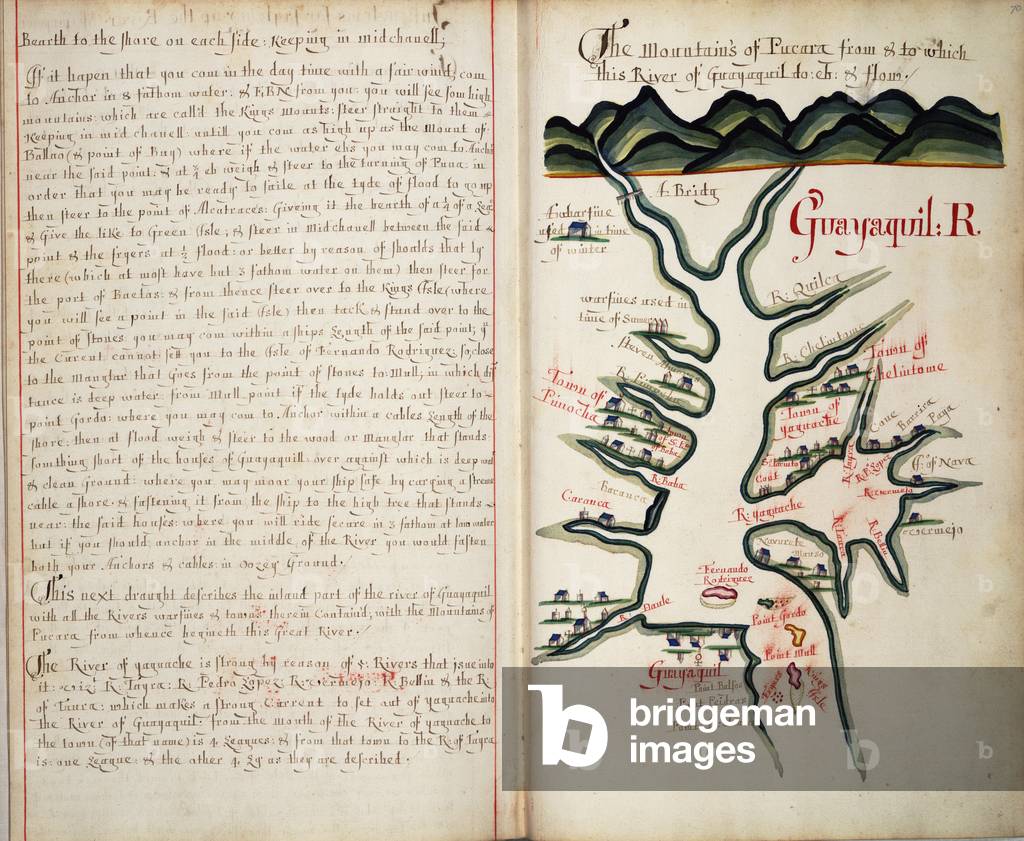 Bearth to the shore on each side: Keeping in midchanell;
If it hapen that you com in the day time with a fair wind, com
to Anchor in 8 fathom water: & E.B.N from you: you will see som high
mountains: which are call'd the Kings mounts: steer straight to them
Keeping in mid chanell: untill you com as high up as the Mount of
Ballao (& point of Buy) where if the water ebs you may com to Anchor
near the said point: & at ¾ eb weigh & steer to the turning of Puna: in
order that you may be ready to saile at the tyde of flood to go up
then steer to the point of Alcatraces: Giveing it the bearth of a ¼ of a Leag
& Give the like to Green Isle; & steer in Midchanell between the said
point & the fryers at ½ flood: or better by reason of shoalds that ly
there (which at most have but 3 fathom water on them) then steer for
the port of Baltas: & from thence steer over to the Kings Isle (where
you will see a point in the said Isle) then tack & stand over to the
point of Stones: you may com within a ships Length of the said point; ye
the Curent cannot sett you to the Isle of Fernando Rodriguez: so, close
to the Manglar that Goes from the point of stones to: Mull; in which dis
tance is deep water: from Mull point if the tyde holds out steer to
point Gordo: where you may com to Anchor within a cables Length of the
shore: then at flood weigh & steer to the wood or Manglar that stands
somthing short of the houses of Guayaquill: over against which is deep wat
& clean Ground: where you may moor your ship safe by carying a streem
cable a shore: & fastening it from the ship to the high tree that stands
near: the said houses: where you will ride secure in 3 fathom at low water
but if you should anchor in the middle of the River you would fasten
both your Anchors & cables: in Oozey Ground.
This next draught describes the inland part of the river of Guayaquil
with all the Rivers warfines & towns therein Containd; with the Mountains of
Pucara from whence begineth this Great River.
The River of yaguache is strong by reason of 5: Rivers that isue into
it: viz: R: Tayra: R. Pedro Lopez: R: Vermejo: R. Bellin & the R
of Taura: which makes a strong Current to set out of yaguache into
the River of Guayaquil: from the mouth of the River of yaguache to
the town (of that name) is 4 Leagues: & from that town to the R: of Tayra
is: one League: & the other 4 Lg as they are described.
70
The Mountain's of Pucara from & to which
this River of Guayaquil do: eb: & flow.
A Bridg
Guayaquil: R.
A wharfine
used in time
of winter
R: Quilca
warfines used in
time of Sumer
R. Chelintome
Town of
Chelintome
Town of
Pinocha
Town of
yaguache
Cone
Barrira
Paya
R. Tayra
R. Po: Lopez
I: of Nava
R: vermejo
vermejo
R: Baba
Baranca
Caranca
R: yaguache
R: Taura
R: Bellin
Navarete
Manso
Fernando
Rodriguez
R. Daule
Point Gordo
Point Mull
Guayaquil
Kings
Isle
bridgeman
images